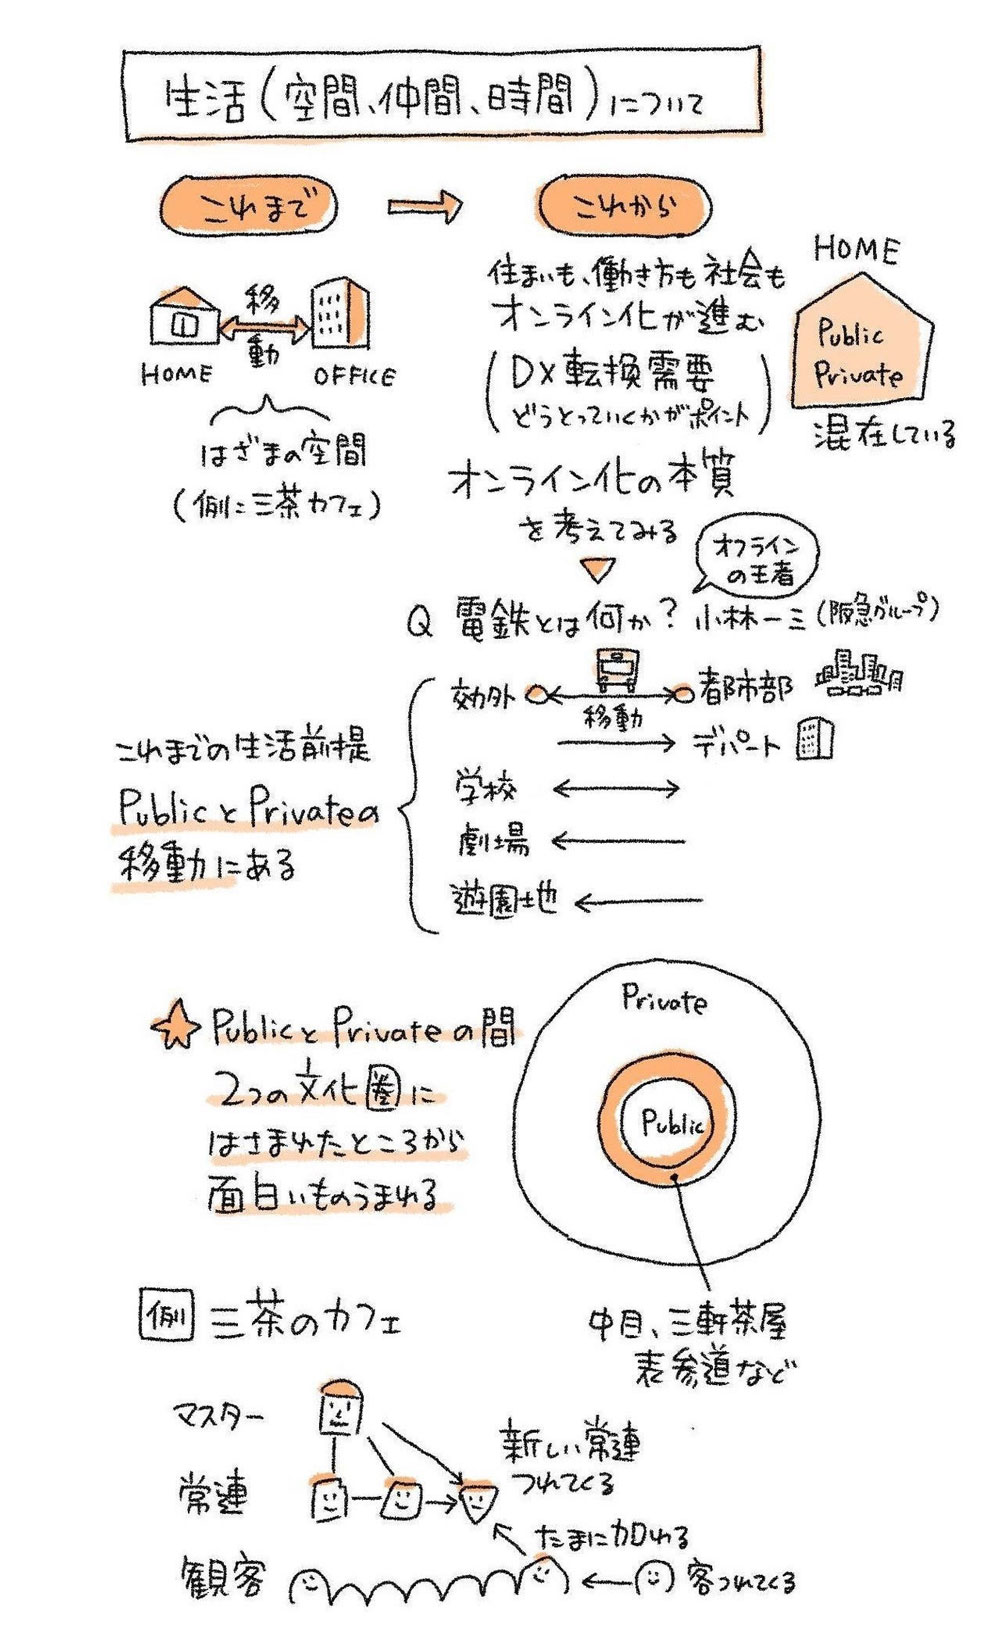 生活(空間、仲間、時間)について
これまで
これから
移動
HOME
OFFICE
はざまの空間
(例:三茶カフェ)
住まいも、働き方も社会も
オンライン化が進む
(DX転換需要
どうとっていくかがポイント)
HOME
Public
Private
混在している
オンライン化の本質
を考えてみる
オフライン
の王者
Q 電鉄とは何か? 小林一三(阪急グループ)
これまでの生活前提
PublicとPrivateの
移動にある
効外
移動
都市部
デパート
学校
劇場
遊園地
PublicとPrivateの間
2つの文化圏に
はさまれたところから
面白いものうまれる
Private
Public
中目、三軒茶屋
表参道など
例 三茶のカフェ
マスター
常連
新しい常連
つれてくる
たまに加わる
観客
客つれてくる